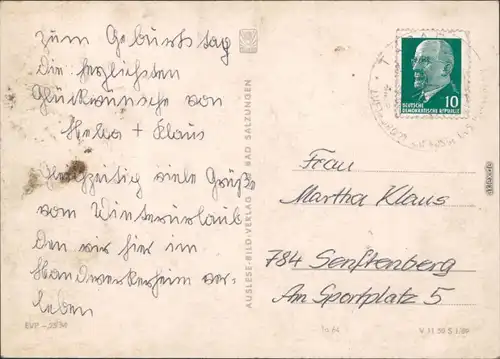 Zum Geburtstag
die herzlichsten
Glückwünsche von
Klaus
Gleichzeitig viele Grüße
vom Winterurlaub
den wir hier im
Handwerkerheim ver-
leben
EVP
AUSLESE-BILD-VERLAG BAD SALZUNGEN
10
DEUTSCHE
DEMOKRATISCHE REPUBLIK
Frau
Martha Klaus
784 Senftenberg
Am Sportplatz 5
V 11 50